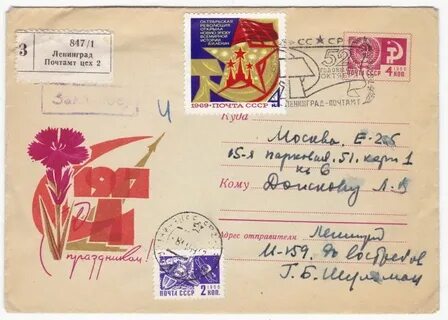 З
847/1
Ленинград
Почтамт цех 2
Заказное
ОКТЯБРЬСКАЯ
РЕВОЛЮЦИЯ
ОТКРЫЛА
НОВУЮ ЭПОХУ
ВСЕМИРНОЙ
ИСТОРИИ
В.И.ЛЕНИН
1969 • ПОЧТА СССР
4
СССР
52
ЛЕНИНГРАД-ПОЧТАМТ
1966
4 КОП
ПОЧТА СССР
Куда
Москва, Е-26
15-я парковая, 51. корп 1
кв 6
Кому
Донскову Л.
Адрес отправителя
Ленинград
И-159
Г. Б.
1917
С
праздником!
1966
2 КОП
ПОЧТА СССР